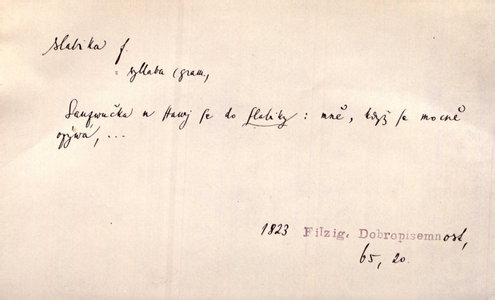 slabika f.
: syllaba (gram,
n stawj se do slabiky : mně, když se mocně
ozývá, ...
1823 Filzig, Dobropisemnost,
65, 20.